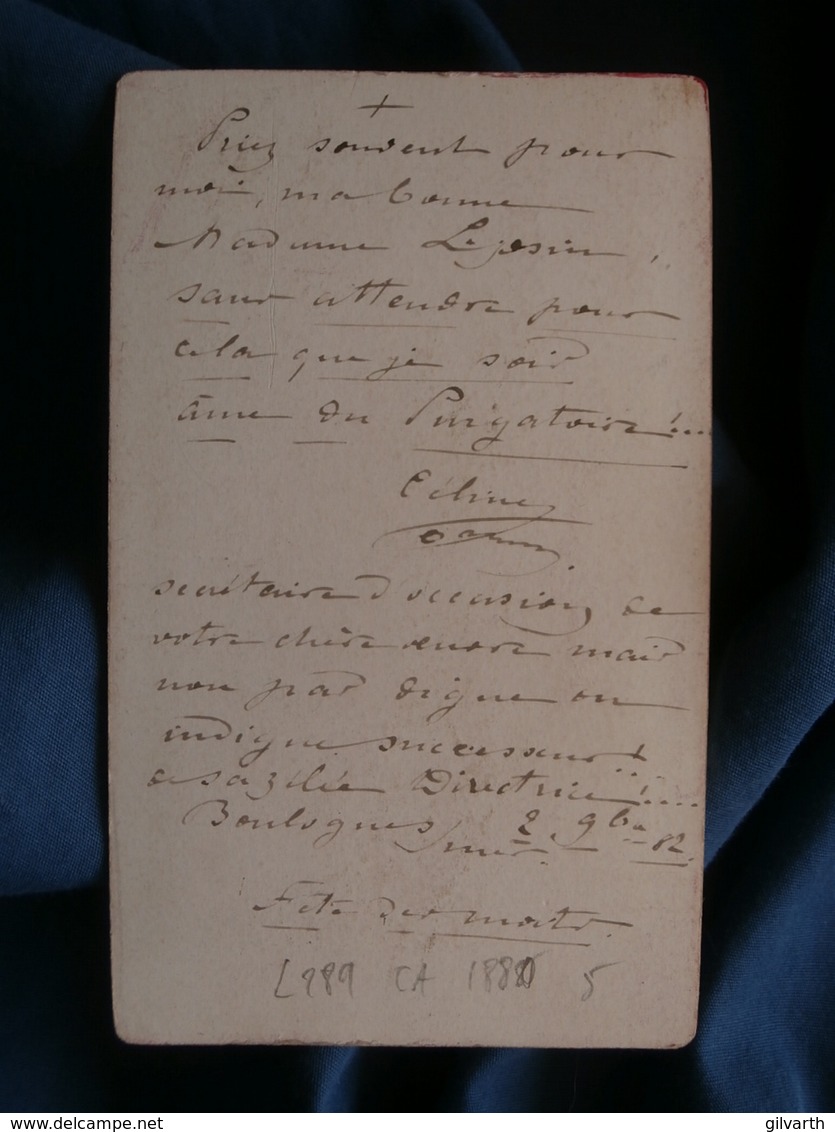 +
Priez souvent pour
moi, ma bonne
Madame
sans attendre pour
cela que je sois
âme du Purgatoire!...
Céline
secrétaire d'occasion, de
votre chère œuvre mais
non pas digne ou
indigne successeur!
de sa zélée Directrice!....
Boulogne s/mer. 2. 9bre 82.
Fête des morts.
L289 CA 1880 5
delcampe.net
gilvarth